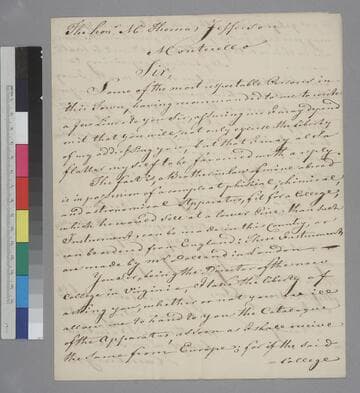 The Honl. Mr. Thomas Jefferson
Monticello
Sir,
Some of the most respectable Persons in
this Town, having recommended to me to write
a few lines to you Sir, assuring me I may depend
on it that you will not only excuse the liberty
of my addressing you, but that I may also
flatter myself to be favoured with a reply.
The fact is a Brother in law of mine abroad
is in possession of a compleat phisical, chimical,
and astronomical Apparatus, fit for a College,
which he would sell at a lower Price than such
Instruments can be made in this Country,
can be ordered from England; these Instruments
are made by Mr. in London
You Sir, being the Director of the new
College in Virginia, I take the liberty of
asking you, whether or not you will
allow me to hand to you the Catalogue
of the Apparatus as soon as I shall receive
the same from Europe; for if the said
College